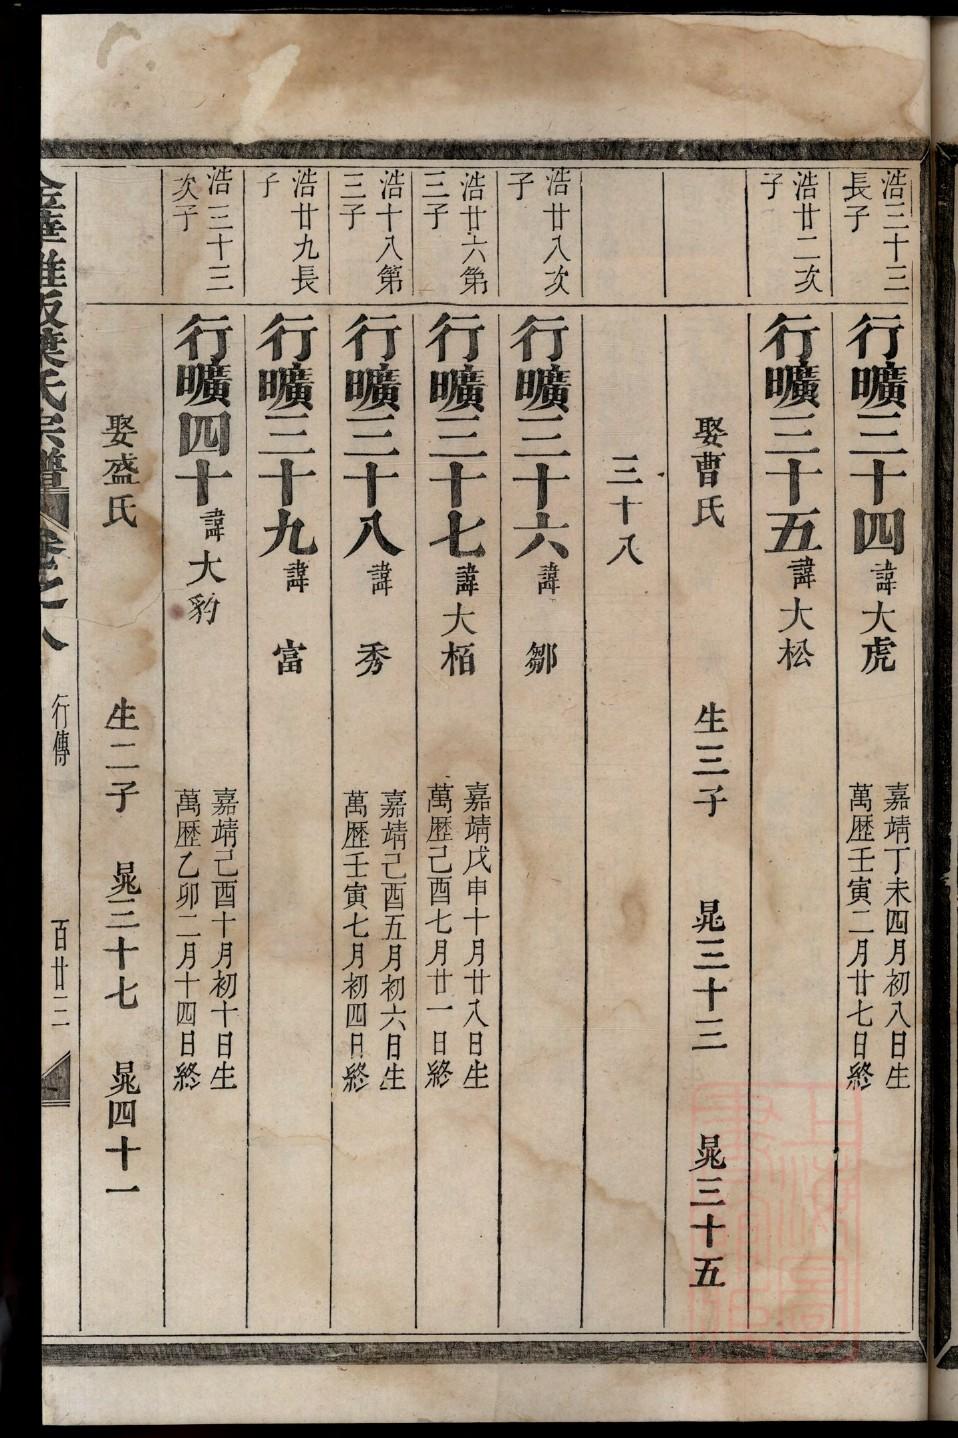 浩三十三
長子
行曠三十四諱大虎
嘉靖丁未四月初八日生
萬歷壬寅二月廿七日終
浩廿二次
子
行曠三十五諱大松
娶曹氏 生三子 晁三十三 晁三十五
三十八
浩廿八次
子
行曠三十六諱 鄒
浩廿六第
三子
行曠三十七諱大栢
嘉靖戊申十月廿八日生
萬歷己酉七月廿一日終
浩十八第
三子
行曠三十八諱 秀
嘉靖己酉五月初六日生
萬歷壬寅七月初四日終
浩廿九長
子
行曠三十九諱 富
浩三十三
次子
行曠四十諱大豹
嘉靖己酉十月初十日生
萬歷乙卯二月十四日終
娶盛氏 生二子 晁三十七 晁四十一
金華雅版葉氏宗譜 卷之八 行傳 百廿三